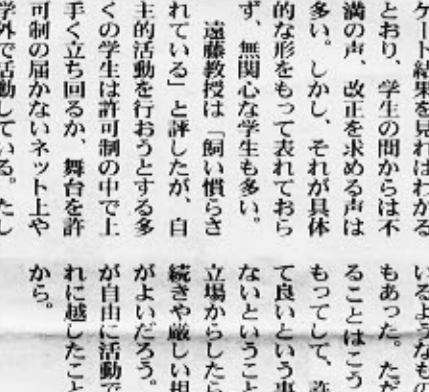 ケート結果を見ればわかる
とおり、学生の間からは不
満の声、改正を求める声は
多い。しかし、それが具体
的な形をもって表れておら
ず、無関心な学生も多い。
遠藤教授は「飼い慣らさ
れている」と評したが、自
主的活動を行おうとする多
くの学生は許可制の中で上
手く立ち回るか、舞台を許
可制の届かないネット上や
学外で活動している。たし
いるようなもの
もあった。ただ
ることはこう
もってして、許
て良いという事
ないということ
立場からしたら
続きや厳しい規
がよいだろう。
が自由に活動で
れに越したこと
から。